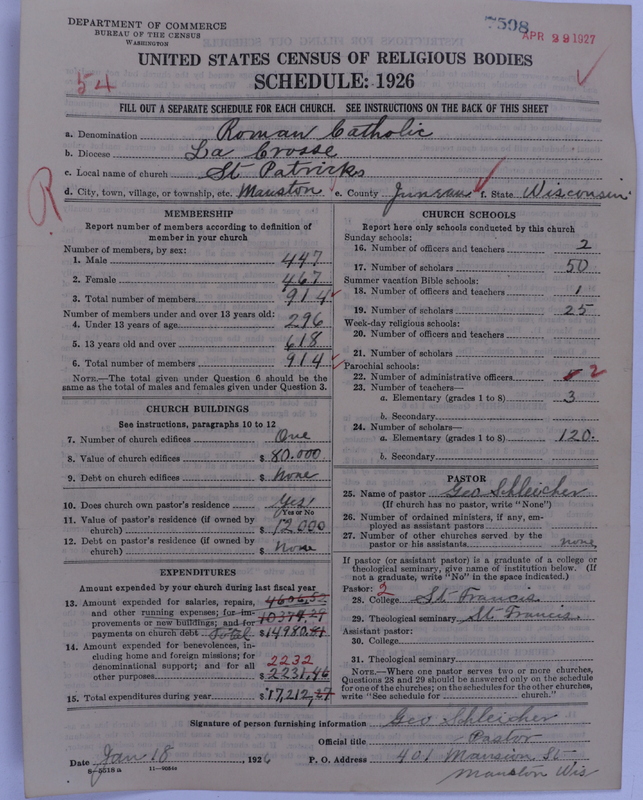 DEPARTMENT OF COMMERCE
BUREAU OF THE CENSUS
WASHINGTON
7598
APR 22 1927
UNITED STATES CENSUS OF RELIGIOUS BODIES
SCHEDULE: 1926
54
FILL OUT A SEPARATE SCHEDULE FOR EACH CHURCH. SEE INSTRUCTIONS ON THE BACK OF THIS SHEET
a. Denomination Roman Catholic
b. Diocese La Crosse
c. Local name of church St Patricks
d. City, town, village, or township, etc. Mauston e. County Juneau f. State Wisconsin
R
MEMBERSHIP
Report number of members according to definition of
member in your church
Number of members, by sex:
1. Male 447
2. Female 467
3. Total number of members 914
Number of members under and over 13 years old:
4. Under 13 years of age 296
5. 13 years old and over 618
6. Total number of members 914
NOTE.—The total given under Question 6 should be
same as the total of males and females given under Question 3.
CHURCH BUILDINGS
See instructions, paragraphs 10 to 12
7. Number of church edifices One
8. Value of church edifices $ 80.000
9. Debt on church edifices $ None
10. Does church own pastor's residence Yes!
Yes or No
11. Value of pastor's residence (if owned by
church) $ 12000
12. Debt on pastor's residence (if owned by
church) $ None
EXPENDITURES
Amount expended by your church during last fiscal year
13. Amount expended for salaries, repairs, 4606.52
and other running expenses; for im- 10374.27
provements or new buildings; and for
payments on church debt Total $ 14980.
14. Amount expended for benevolences, in-
cluding home and foreign missions; for
denominational support; and for all 2232
other purposes $ 2231,46
15. Total expenditures during year $ 17,212,27
CHURCH SCHOOLS
Report here only schools conducted by this church
Sunday schools:
16. Number of officers and teachers 2
17. Number of scholars 50
Summer vacation Bible schools:
18. Number of officers and teachers 1
19. Number of scholars 25
Week-day religious schools:
20. Number of officers and teachers
21. Number of scholars
Parochial schools:
22. Number of administrative officers 2
23. Number of teachers—
a. Elementary (grades 1 to 8) 3
b. Secondary
24. Number of scholars—
a. Elementary (grades 1 to 8) 120.
b. Secondary
PASTOR
25. Name of pastor Geo Schleicher
(If church has no pastor, write "None")
26. Number of ordained ministers, if any, em-
ployed as assistant pastors
27. Number of other churches served by the
pastor or his assistants none
If pastor (or assistant pastor) is a graduate of a college or
theological seminary, give name of institution below. (If
not a graduate, write "No" in the space indicated.)
Pastor: 2
28. College St Francis
29. Theological seminary St Francis
Assistant pastor:
30. College
31. Theological seminary
NOTE.—Where one pastor serves two or more churches,
Questions 28 and 29 should be answered only on the schedule
for one of the churches; on the schedules for the other churches,
write "See schedule for church."
Signature of person furnishing information Geo Schleicher
Official title Pastor
Date Jan 18, 1926 P. O. Address 401 Mansion St
Mauston Wis
8—5518 a